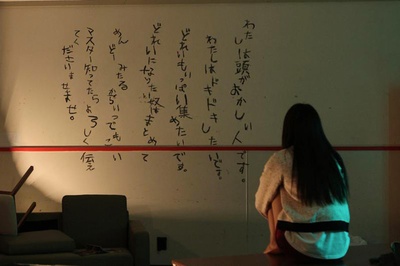 わたしは頭がおかしい人です。
わたしはドキドキしたいです。
どれいもいっぱい集めたいです。
どれいになりたい奴はまとめて
めんどーみたる
マスター知ってたらよろしく伝えてく
ださいませませ。